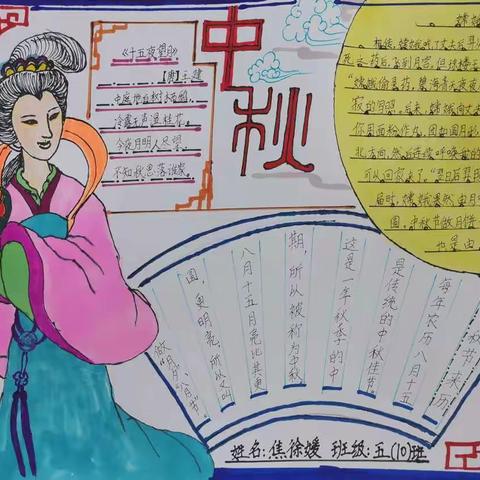 中秋
《十五夜望月》
王建
中庭地白树栖鸦,
冷露无声湿桂花,
今夜月明人尽望,
不知秋思落谁家。
嫦娥
相传,嫦娥吃了丈夫后羿
死之药后,奔到月宫,但琼楼玉
"嫦娥偷灵药,碧海青天夜夜
寂的。后来,嫦娥向丈夫
你用面粉作丸,团如圆月形
北方向,然后连续呼唤我的
可以回家来了。"翌日后羿照
届时,嫦娥果然由月中
圆。中秋节做月饼
也是由
秋节来历
每年农历八月十五
是传统的中秋佳节
这是一年秋季的中
期,所以被称为中秋
八月十五月亮比其更
圆,更明亮,所以又叫
做"月夕","八月节"。
姓名:焦徐媛 班级:五(10)班